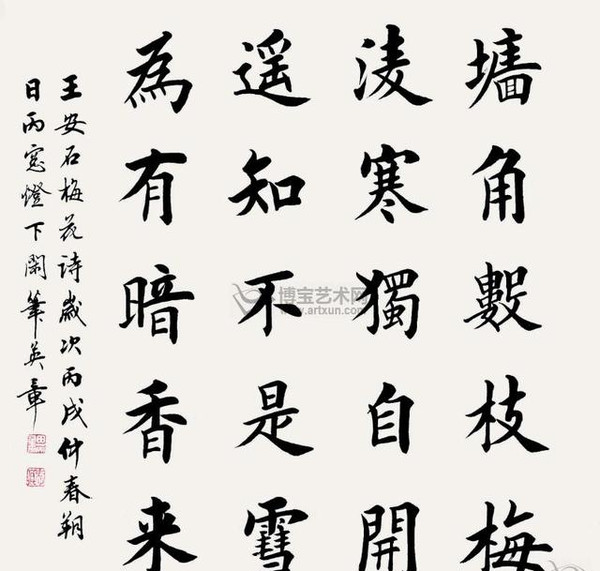 墻角數枝梅
淩寒獨自開
遥知不是雪
為有暗香来
王安石梅花詩歲次丙戌仲春朔
日雨窓燈下閑筆英章
博宝艺术网
www.artxun.com